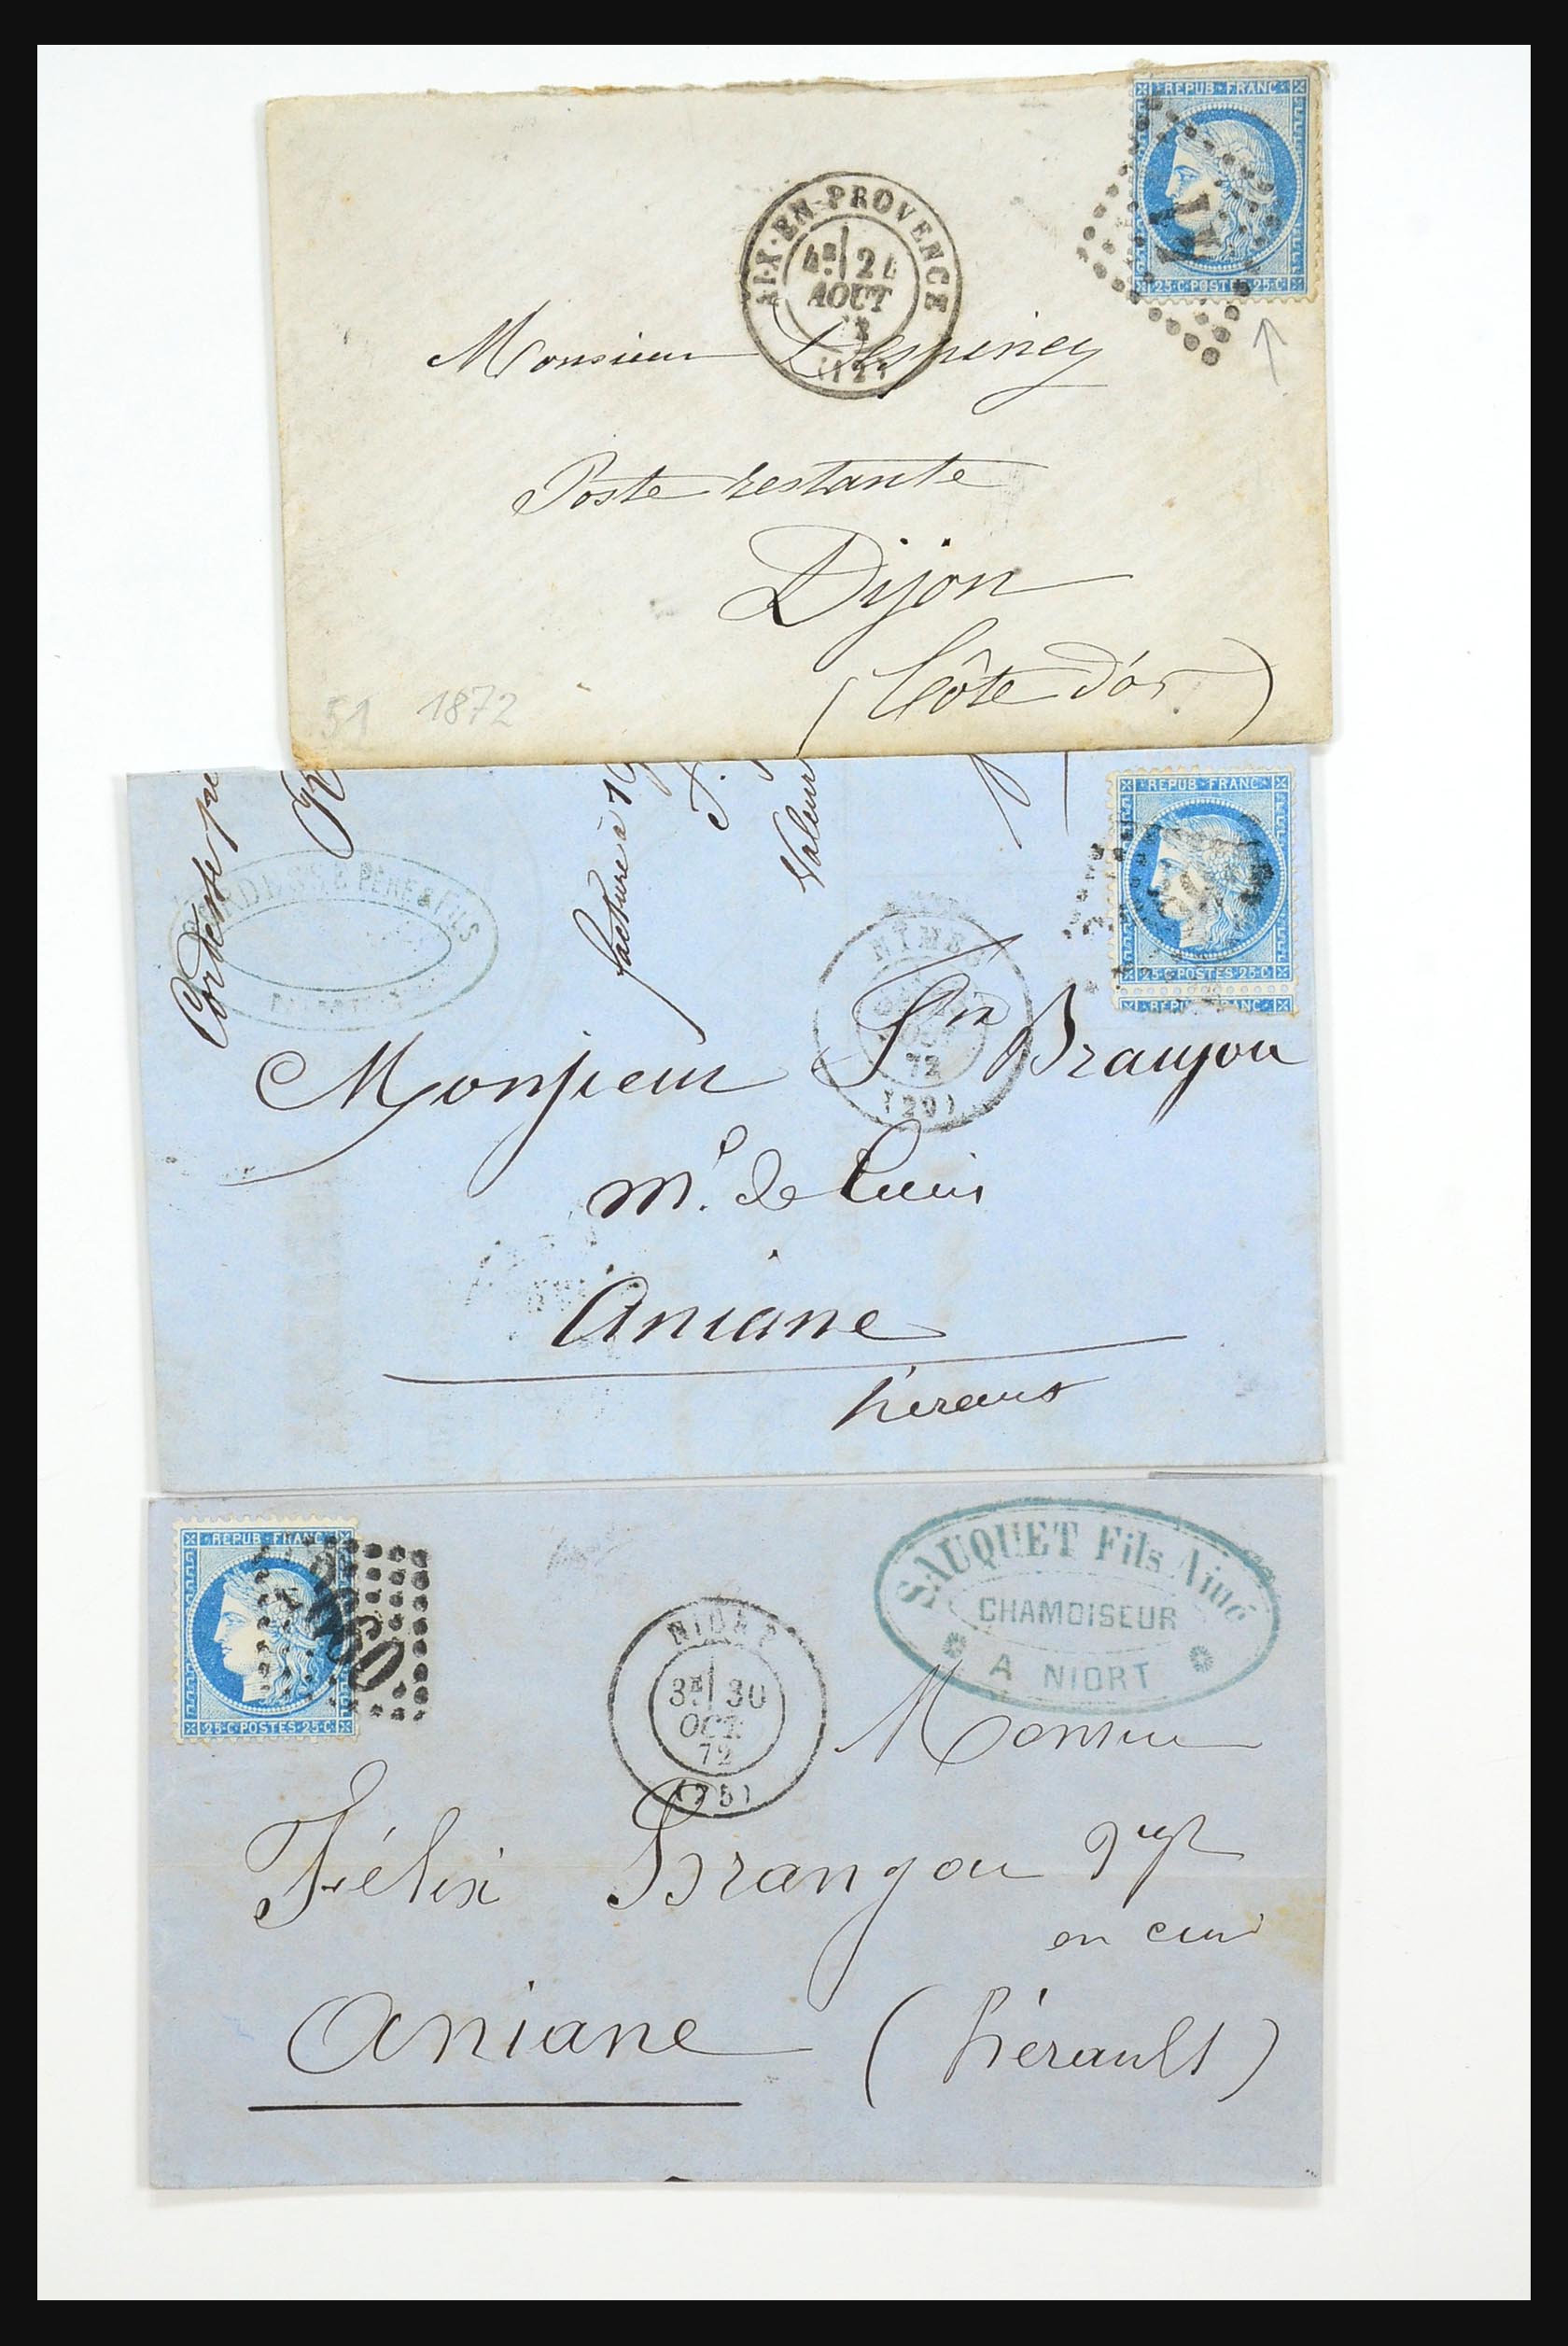 REPUB·FRANC
25·C·POSTES·25·C
AIX-EN-PROVENCE
AOUT
Monsieur Despiney
Poste restante
Dijon
(Côte d'or)
51 1872
REPUB·FRANC
25·C·POSTES·25·C
REPUB FRANC
facture à
Valeur
PÈRE & FILS
NIMES
72
(29)
Monsieur Branjou
md. de Cuirs
Aniane
hérault
REPUB·FRANC
25·C·POSTES·25·C
SAUQUET Fils Ainé
CHAMOISEUR
A NIORT
NIORT
3E 30
OCT.
72
(75)
Monsieur
Félix Branjou
en cuirs
Aniane (hérault)